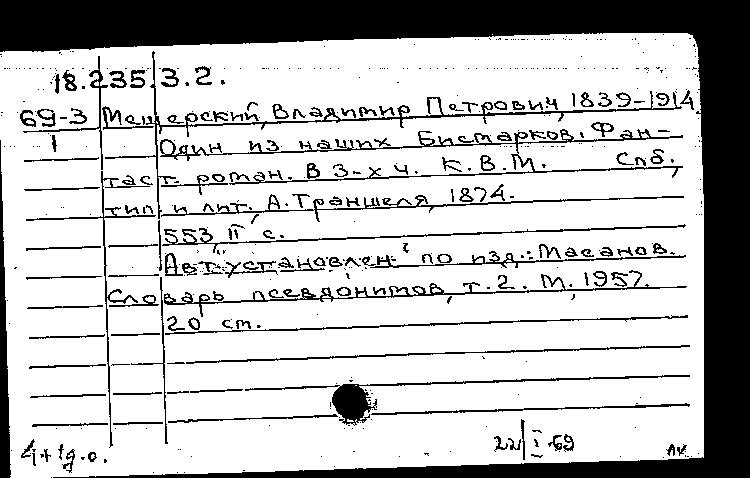 18.235.3.2.
69-3 Мещерский, Владимир Петрович, 1839-1914
1 Один из наших Бисмарков. Фан-
таст. роман. В 3-х ч. К.В.М. Спб.,
тип. и лит. А. Траншеля, 1874.
553, II с.
Авт. установлен по изд.: Масанов.
Словарь псевдонимов, т. 2. М., 1957.
20 см.
22/I-69